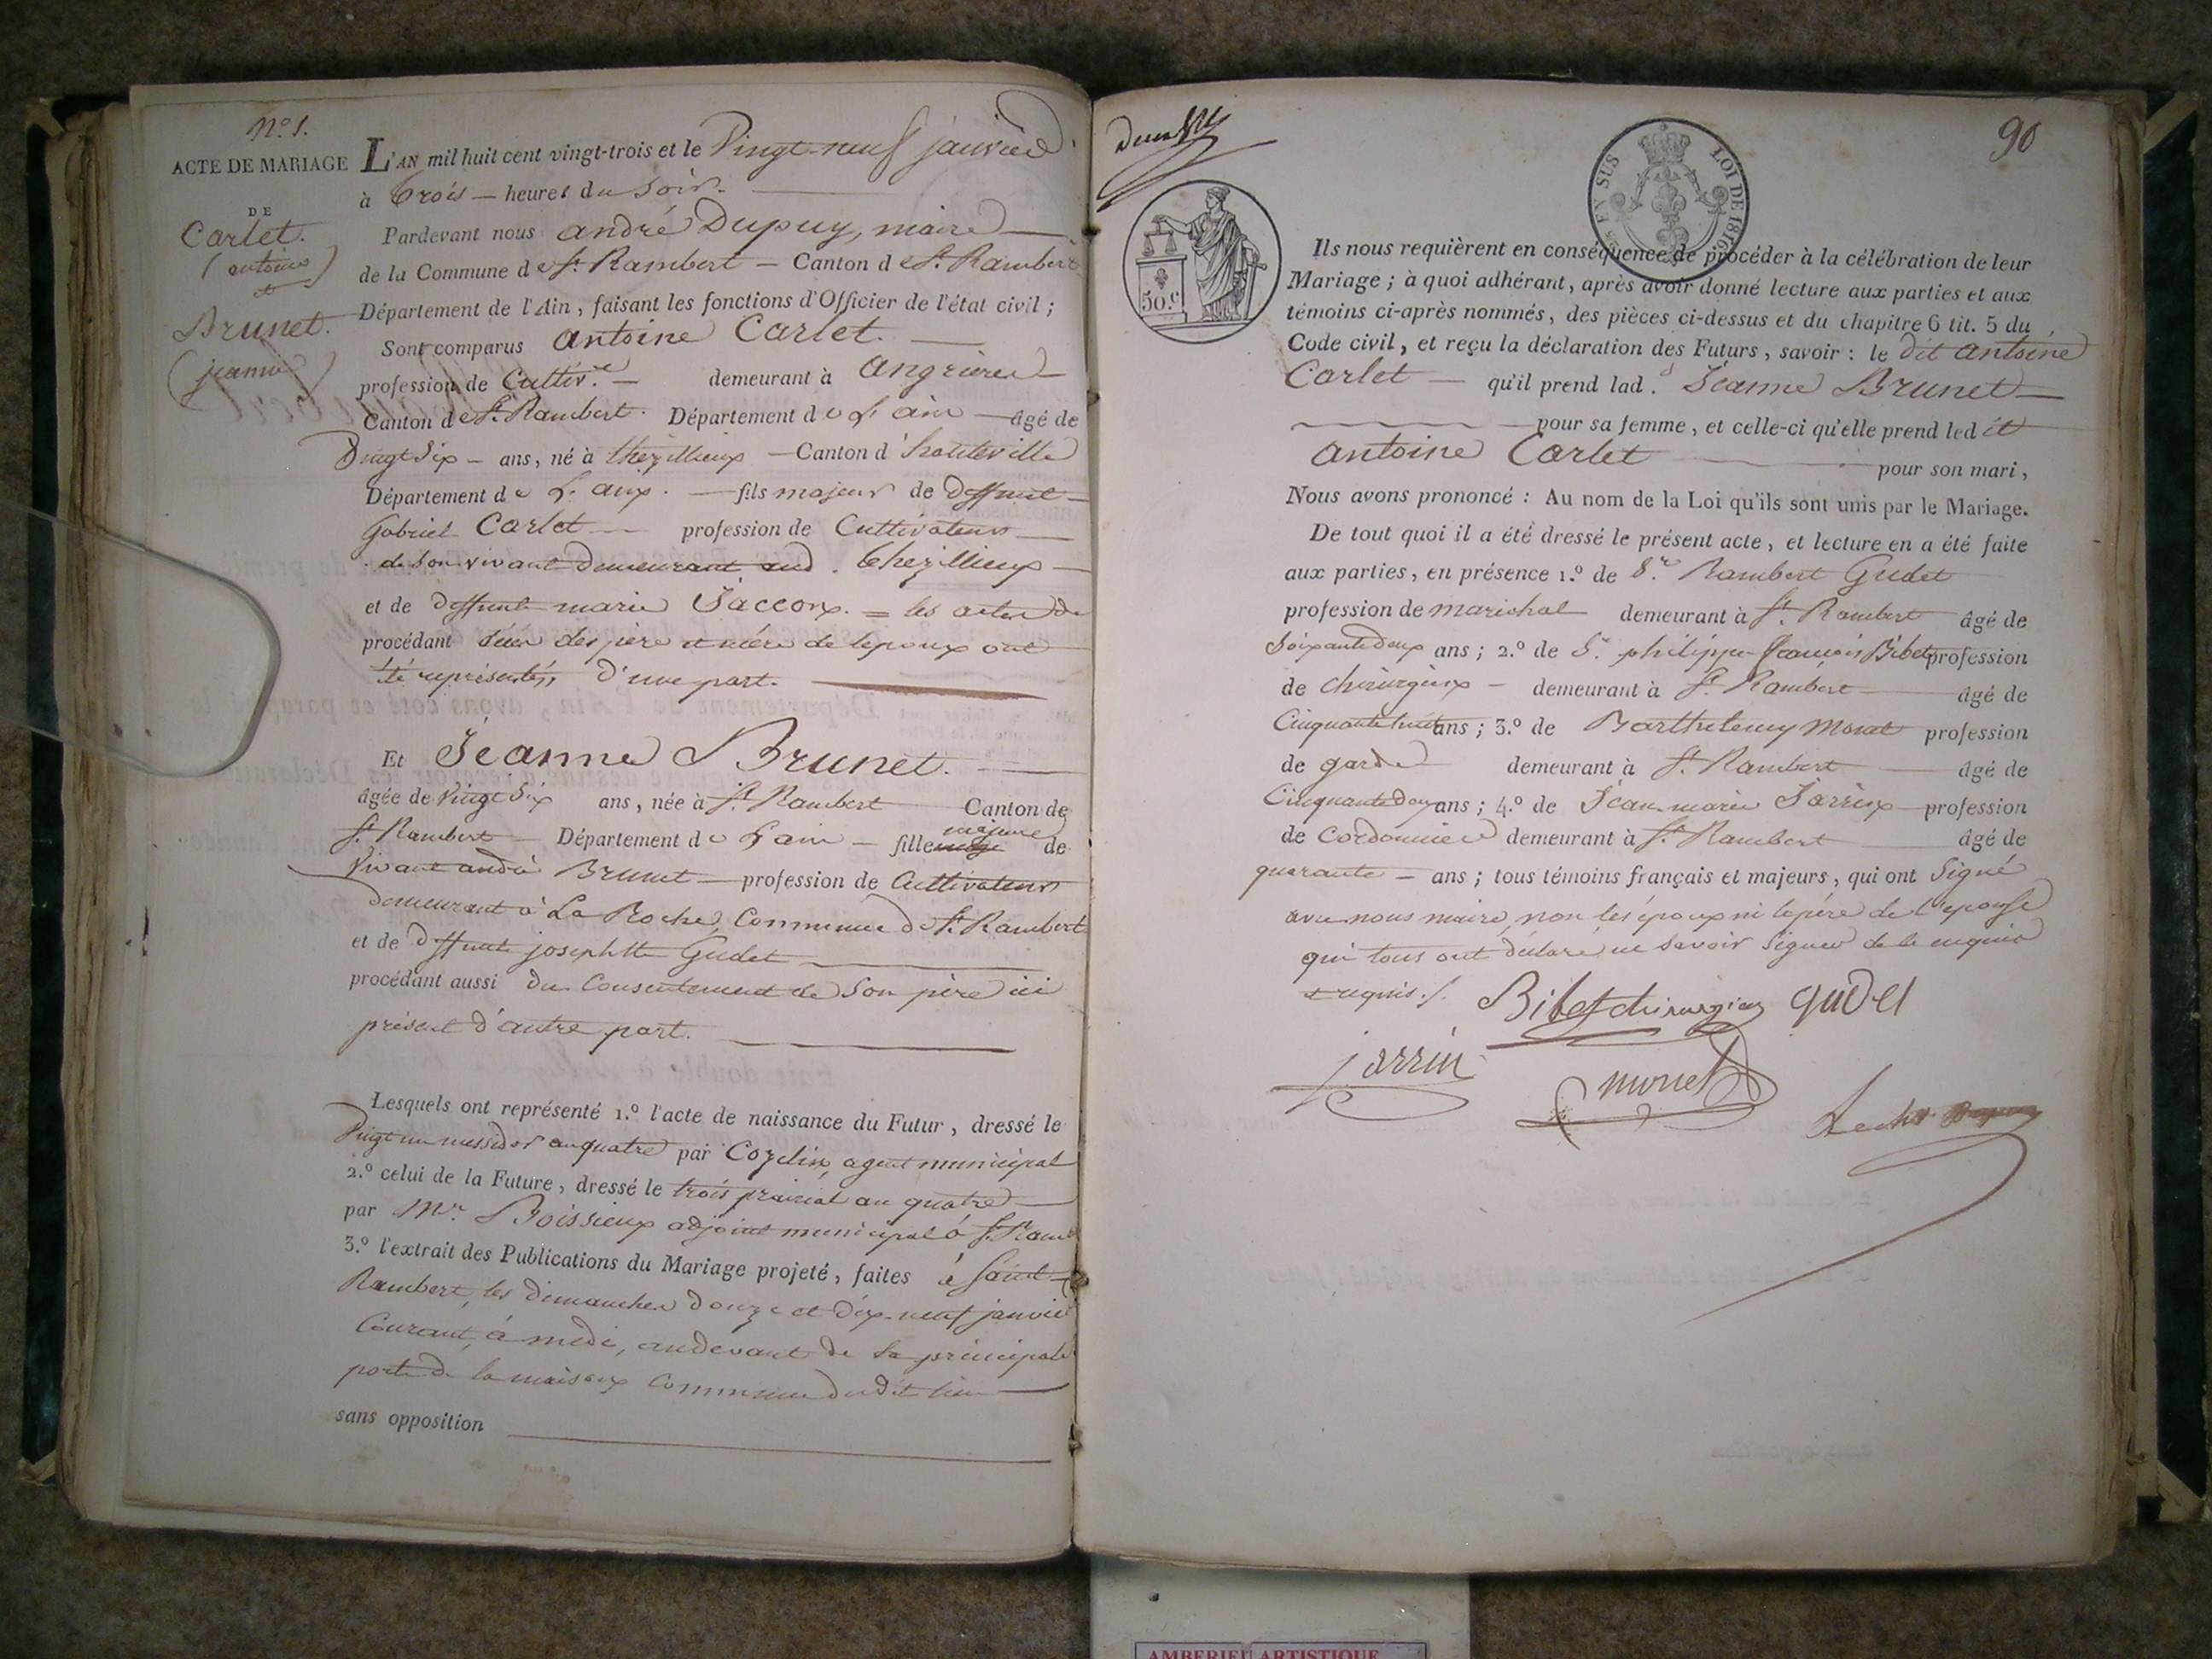 N.o 1.
ACTE DE MARIAGE
DE
Carlet.
(antoine)
et
Brunet.
(jeanne)
L'AN mil huit cent vingt-trois et le Vingt-neuf janvier
à trois — heures du soir.
Pardevant nous andré Dupuy, maire
de la Commune de St. Rambert — Canton de St. Rambert
Département de l'Ain, faisant les fonctions d'Officier de l'état civil ;
Sont comparus antoine Carlet.
profession de Cultiv.r — demeurant à angrières
Canton de St. Rambert. Département de L'ain — âgé de
Vingt Six — ans, né à thézillieux — Canton d'hauteville
Département de L'ain. — fils majeur de deffunt
Gabriel Carlet — profession de Cultivateur
de Son vivant demeurant aud. thezillieux
et de deffunte marie Jaccoux. = les actes de
procédant décès des père et mère de lepoux ont
été représentés, d'une part.
Et Jeanne Brunet.
âgée de Vingt Six ans, née à St. Rambert Canton de
St. Rambert — Département de L'ain — fille majeure de
Vivant andré Brunet — profession de Cultivateur
demeurant à La Roche, Commune de St. Rambert
et de deffunte josephtte Gudet
procédant aussi du Consentement de Son père ici
présent d'autre part.
Lesquels ont représenté 1.o l'acte de naissance du Futur, dressé le
Vingt un messidor an quatre par Cozelin, agent municipal
2.o celui de la Future, dressé le trois prairial an quatre
par Mr. Boissieux adjoint municipal à St. Ramb
3.o l'extrait des Publications du Mariage projeté, faites à Saint
Rambert, les dimanches douze et dix-neuf janvier
Courant, à midi, audevant de la principale
porte de la maison Commune dudit lieu
sans opposition
90
EN SUS
LOI DE 1816
50.c
Ils nous requièrent en conséquence de procéder à la célébration de leur
Mariage ; à quoi adhérant, après avoir donné lecture aux parties et aux
témoins ci-après nommés, des pièces ci-dessus et du chapitre 6 tit. 5 du
Code civil, et reçu la déclaration des Futurs, savoir : le dit antoine
Carlet — qu'il prend lad. Jeanne Brunet
pour sa femme, et celle-ci qu'elle prend ledit
antoine Carlet pour son mari,
Nous avons prononcé : Au nom de la Loi qu'ils sont unis par le Mariage.
De tout quoi il a été dressé le présent acte, et lecture en a été faite
aux parties, en présence 1.o de S.r Rambert Gudet
profession de marichal demeurant à St. Rambert âgé de
Soixante deux ans ; 2.o de S.r philippe françois Bibet profession
de chirurgien — demeurant à St. Rambert âgé de
Cinquante huit ans ; 3.o de Barthelemy Monet profession
de garde demeurant à St. Rambert âgé de
Cinquante deux ans ; 4.o de Jean marie Jarrin profession
de cordonnier demeurant à St. Rambert âgé de
quarante — ans ; tous témoins français et majeurs, qui ont Signé
avec nous maire, non les époux ni le père de l'épouse
qui tous ont déclaré ne Savoir Signer de ce enquis
et requis./.
Bibet chirurgien gudet
jarrin
monet
AMBERIEU ARTISTIQUE